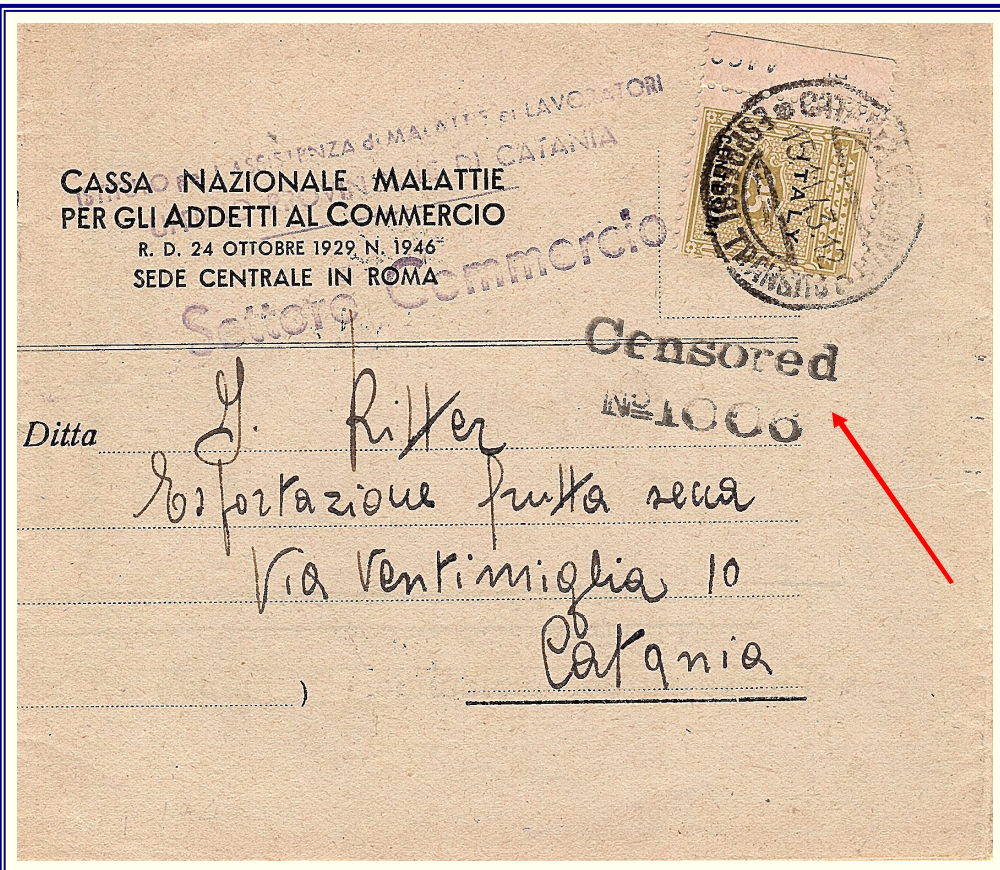 ASSISTENZA di MALATTIE ai LAVORATORI
DI CATANIA
CASSA NAZIONALE MALATTIE
PER GLI ADDETTI AL COMMERCIO
R. D. 24 OTTOBRE 1929 N. 1946
SEDE CENTRALE IN ROMA
Settore Commercio
ITALY
Censored
Nº 1006
Ditta J. Ritter
Esportazione frutta secca
Via Ventimiglia 10
Catania
)